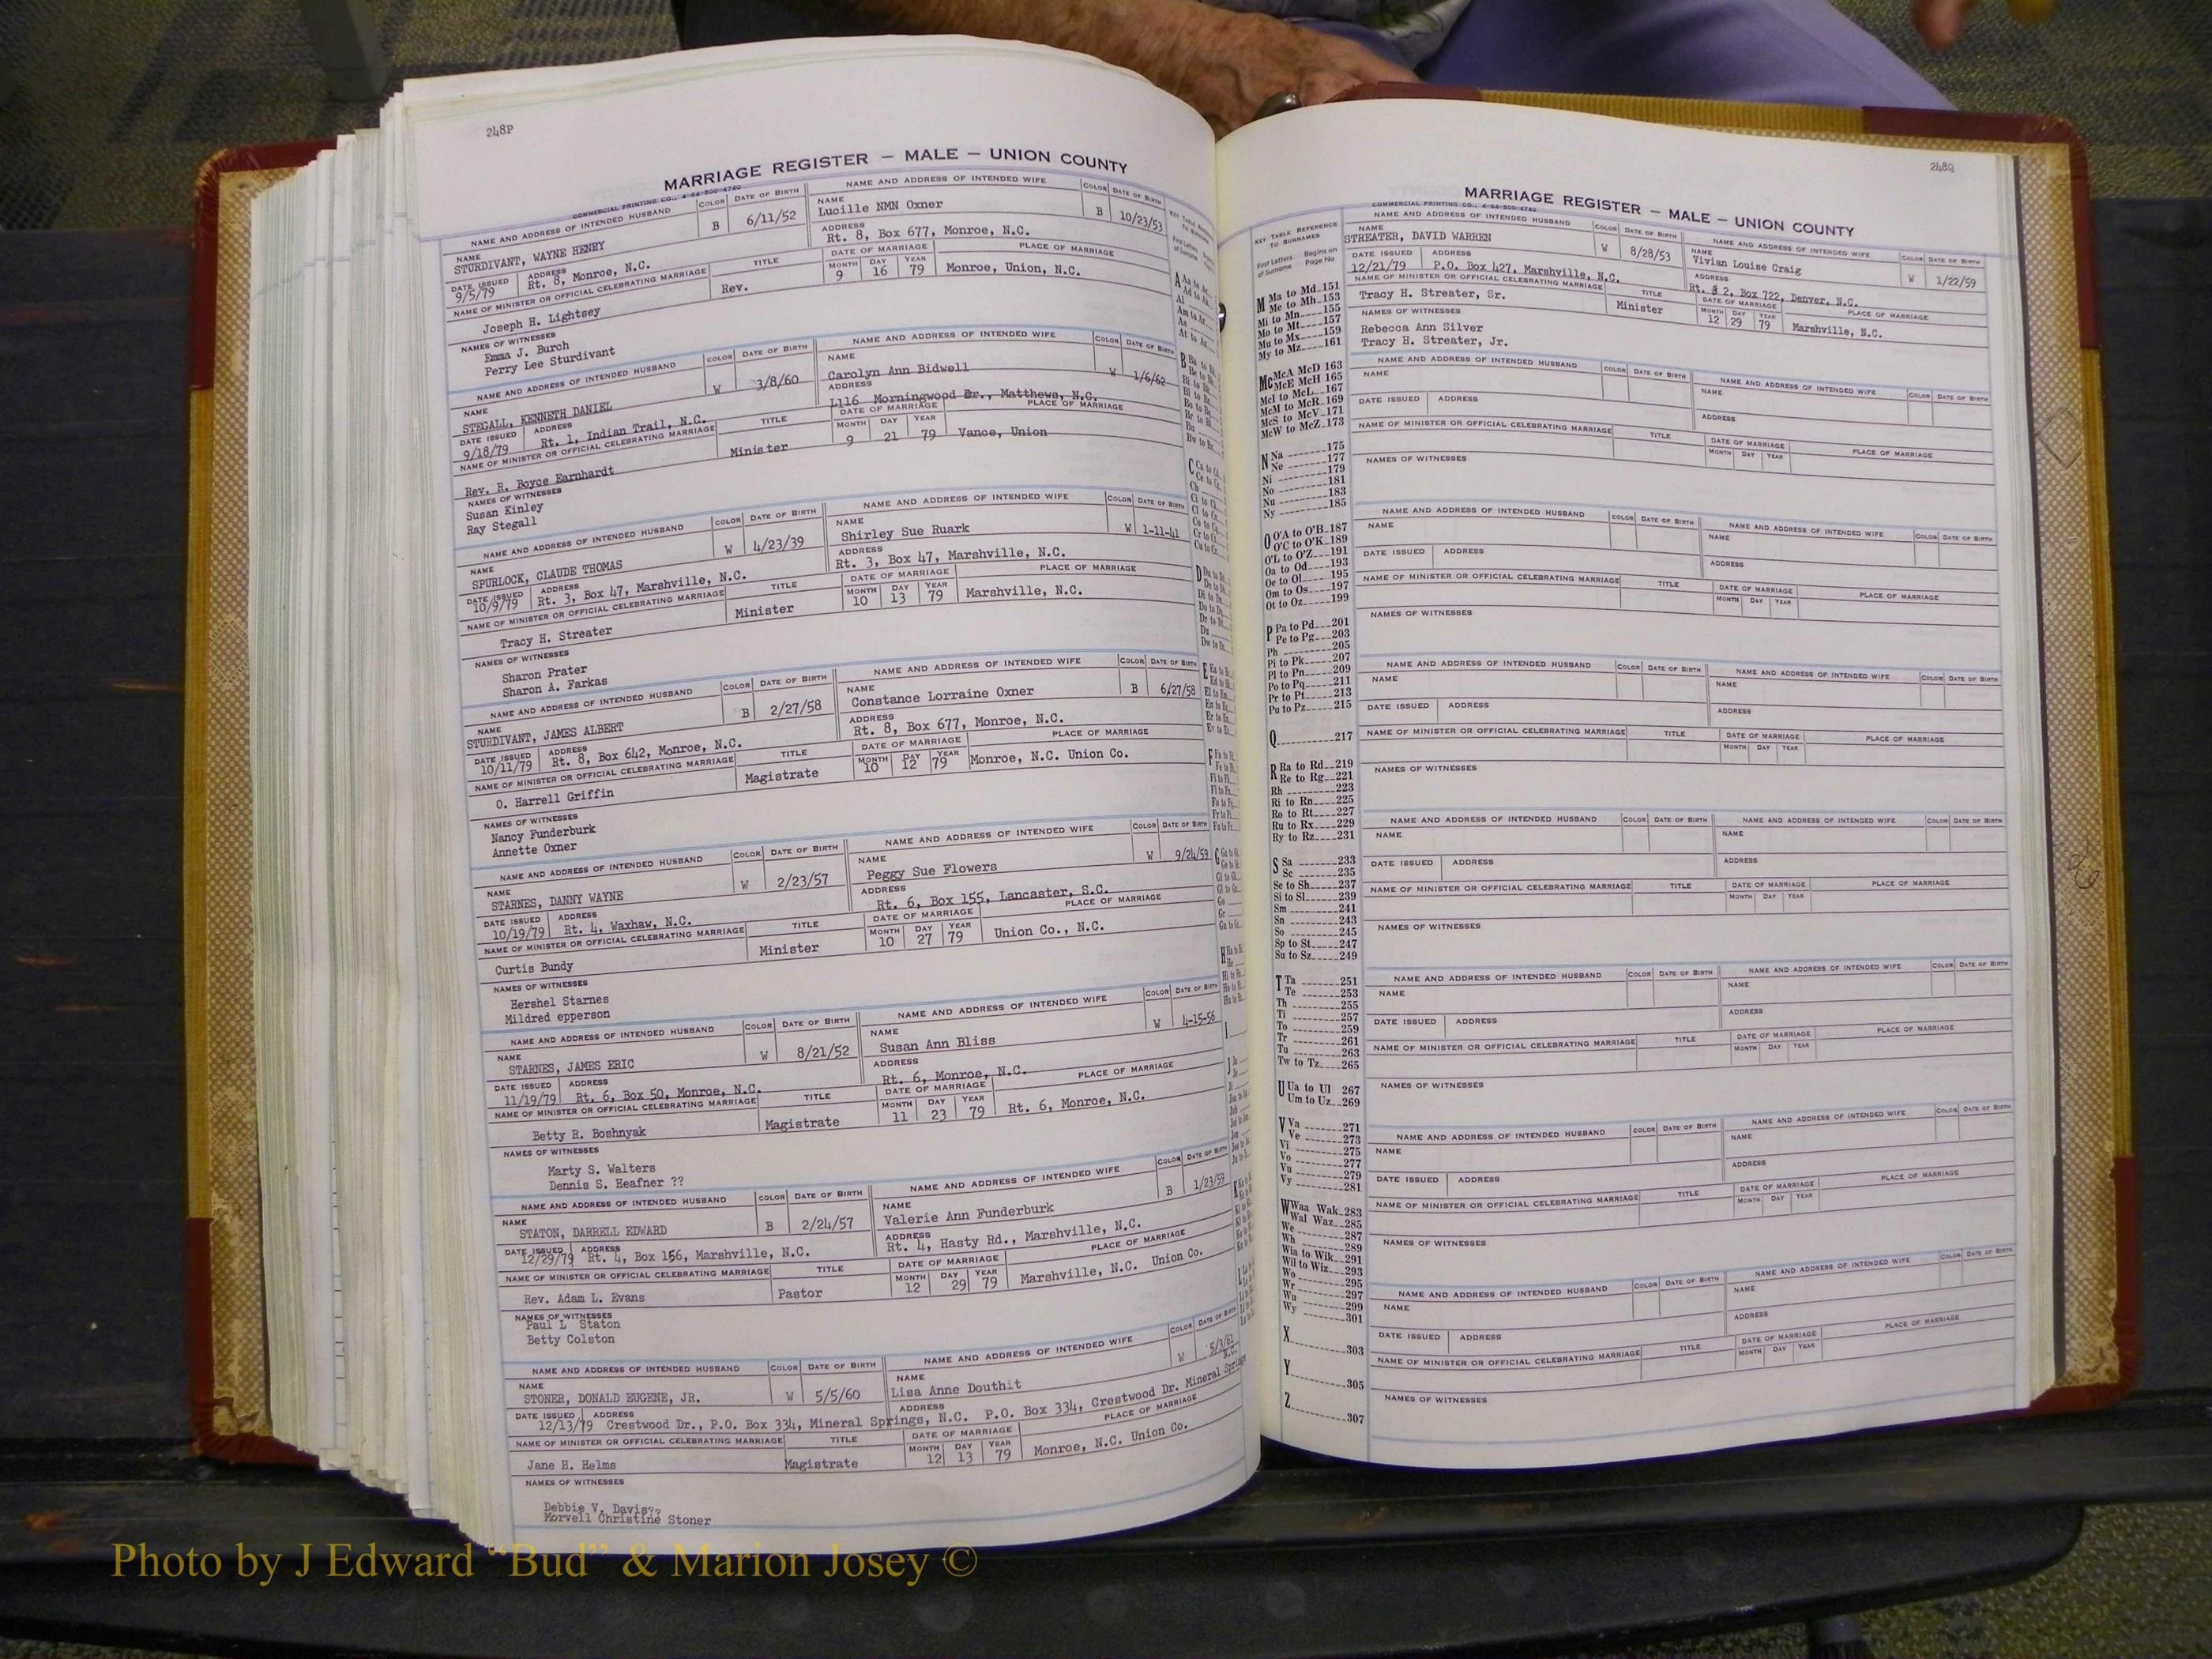 248P
MARRIAGE REGISTER — MALE — UNION COUNTY
COMMERCIAL PRINTING CO., 4-64 500 4740
NAME AND ADDRESS OF INTENDED HUSBAND COLOR DATE OF BIRTH NAME AND ADDRESS OF INTENDED WIFE COLOR DATE OF BIRTH
NAME STURDIVANT, WAYNE HENRY B 6/11/52 NAME Lucille NMN Oxner B 10/23/53
DATE ISSUED 9/5/79 ADDRESS Rt. 8, Monroe, N.C. ADDRESS Rt. 8, Box 677, Monroe, N.C.
NAME OF MINISTER OR OFFICIAL CELEBRATING MARRIAGE TITLE DATE OF MARRIAGE PLACE OF MARRIAGE
Joseph H. Lightsey Rev. MONTH 9 DAY 16 YEAR 79 Monroe, Union, N.C.
NAMES OF WITNESSES
Emma J. Burch
Perry Lee Sturdivant
NAME AND ADDRESS OF INTENDED HUSBAND COLOR DATE OF BIRTH NAME AND ADDRESS OF INTENDED WIFE COLOR DATE OF BIRTH
NAME STEGALL, KENNETH DANIEL W 3/8/60 NAME Carolyn Ann Bidwell W 1/6/62
DATE ISSUED 9/18/79 ADDRESS Rt. 1, Indian Trail, N.C. ADDRESS 1116 Morningwood Dr., Matthews, N.C.
NAME OF MINISTER OR OFFICIAL CELEBRATING MARRIAGE TITLE DATE OF MARRIAGE PLACE OF MARRIAGE
Rev. R. Boyce Earnhardt Minister MONTH 9 DAY 21 YEAR 79 Vance, Union
NAMES OF WITNESSES
Susan Kinley
Ray Stegall
NAME AND ADDRESS OF INTENDED HUSBAND COLOR DATE OF BIRTH NAME AND ADDRESS OF INTENDED WIFE COLOR DATE OF BIRTH
NAME SPURLOCK, CLAUDE THOMAS W 4/23/39 NAME Shirley Sue Ruark W 1-11-41
DATE ISSUED 10/9/79 ADDRESS Rt. 3, Box 47, Marshville, N.C. ADDRESS Rt. 3, Box 47, Marshville, N.C.
NAME OF MINISTER OR OFFICIAL CELEBRATING MARRIAGE TITLE DATE OF MARRIAGE PLACE OF MARRIAGE
Tracy H. Streater Minister MONTH 10 DAY 13 YEAR 79 Marshville, N.C.
NAMES OF WITNESSES
Sharon Prater
Sharon A. Farkas
NAME AND ADDRESS OF INTENDED HUSBAND COLOR DATE OF BIRTH NAME AND ADDRESS OF INTENDED WIFE COLOR DATE OF BIRTH
NAME STURDIVANT, JAMES ALBERT B 2/27/58 NAME Constance Lorraine Oxner B 6/27/58
DATE ISSUED 10/11/79 ADDRESS Rt. 8, Box 642, Monroe, N.C. ADDRESS Rt. 8, Box 677, Monroe, N.C.
NAME OF MINISTER OR OFFICIAL CELEBRATING MARRIAGE TITLE DATE OF MARRIAGE PLACE OF MARRIAGE
O. Harrell Griffin Magistrate MONTH 10 DAY 12 YEAR 79 Monroe, N.C. Union Co.
NAMES OF WITNESSES
Nancy Funderburk
Annette Oxner
NAME AND ADDRESS OF INTENDED HUSBAND COLOR DATE OF BIRTH NAME AND ADDRESS OF INTENDED WIFE COLOR DATE OF BIRTH
NAME STARNES, DANNY WAYNE W 2/23/57 NAME Peggy Sue Flowers W 9/24/59
DATE ISSUED 10/19/79 ADDRESS Rt. 4, Waxhaw, N.C. ADDRESS Rt. 6, Box 155, Lancaster, S.C.
NAME OF MINISTER OR OFFICIAL CELEBRATING MARRIAGE TITLE DATE OF MARRIAGE PLACE OF MARRIAGE
Curtis Bundy Minister MONTH 10 DAY 27 YEAR 79 Union Co., N.C.
NAMES OF WITNESSES
Hershel Starnes
Mildred epperson
NAME AND ADDRESS OF INTENDED HUSBAND COLOR DATE OF BIRTH NAME AND ADDRESS OF INTENDED WIFE COLOR DATE OF BIRTH
NAME STARNES, JAMES ERIC W 8/21/52 NAME Susan Ann Bliss W 4-15-56
DATE ISSUED 11/19/79 ADDRESS Rt. 6, Box 50, Monroe, N.C. ADDRESS Rt. 6, Monroe, N.C.
NAME OF MINISTER OR OFFICIAL CELEBRATING MARRIAGE TITLE DATE OF MARRIAGE PLACE OF MARRIAGE
Betty R. Boshnyak Magistrate MONTH 11 DAY 23 YEAR 79 Rt. 6, Monroe, N.C.
NAMES OF WITNESSES
Marty S. Walters
Dennis S. Heafner ??
NAME AND ADDRESS OF INTENDED HUSBAND COLOR DATE OF BIRTH NAME AND ADDRESS OF INTENDED WIFE COLOR DATE OF BIRTH
NAME STATON, DARRELL EDWARD B 2/24/57 NAME Valerie Ann Funderburk B 1/23/59
DATE ISSUED 12/29/79 ADDRESS Rt. 4, Box 156, Marshville, N.C. ADDRESS Rt. 4, Hasty Rd., Marshville, N.C.
NAME OF MINISTER OR OFFICIAL CELEBRATING MARRIAGE TITLE DATE OF MARRIAGE PLACE OF MARRIAGE
Rev. Adam L. Evans Pastor MONTH 12 DAY 29 YEAR 79 Marshville, N.C. Union Co.
NAMES OF WITNESSES
Paul L Staton
Betty Colston
NAME AND ADDRESS OF INTENDED HUSBAND COLOR DATE OF BIRTH NAME AND ADDRESS OF INTENDED WIFE COLOR DATE OF BIRTH
NAME STONER, DONALD EUGENE, JR. W 5/5/60 NAME Lisa Anne Douthit W 5/3/61
DATE ISSUED 12/13/79 ADDRESS Crestwood Dr., P.O. Box 334, Mineral Springs, N.C. ADDRESS P.O. Box 334, Crestwood Dr. Mineral Springs N.C.
NAME OF MINISTER OR OFFICIAL CELEBRATING MARRIAGE TITLE DATE OF MARRIAGE PLACE OF MARRIAGE
Jane H. Helms Magistrate MONTH 12 DAY 13 YEAR 79 Monroe, N.C. Union Co.
NAMES OF WITNESSES
Debbie V. Davis??
Morvell Christine Stoner
248Q
MARRIAGE REGISTER — MALE — UNION COUNTY
COMMERCIAL PRINTING CO., 4-64 500 4740
KEY TABLE REFERENCE TO SURNAMES
First Letters of Surname Begins on Page No
M Ma to Md 151
Me to Mh 153
Mi to Mn 155
Mo to Mt 157
Mu to Mx 159
My to Mz 161
Mc McA McD 163
McE McH 165
McI to McL 167
McM to McR 169
McS to McV 171
McW to McZ 173
N Na 175
Ne 177
Ni 179
No 181
Nu 183
Ny 185
O O'A to O'B 187
O'C to O'K 189
O'L to O'Z 191
Oa to Od 193
Oe to Ol 195
Om to Os 197
Ot to Oz 199
P Pa to Pd 201
Pe to Pg 203
Ph 205
Pi to Pk 207
Pl to Pn 209
Po to Pq 211
Pr to Pt 213
Pu to Pz 215
Q 217
R Ra to Rd 219
Re to Rg 221
Rh 223
Ri to Rn 225
Ro to Rt 227
Ru to Rx 229
Ry to Rz 231
S Sa 233
Sc 235
Se to Sh 237
Si to Sl 239
Sm 241
Sn 243
So 245
Sp to St 247
Su to Sz 249
T Ta 251
Te 253
Th 255
Ti 257
To 259
Tr 261
Tu 263
Tw to Tz 265
U Ua to Ul 267
Um to Uz 269
V Va 271
Ve 273
Vi 275
Vo 277
Vu 279
Vy 281
W Waa Wak 283
Wal Waz 285
We 287
Wh 289
Wia to Wik 291
Wil to Wiz 293
Wo 295
Wr 297
Wu 299
Wy 301
X 303
Y 305
Z 307
NAME AND ADDRESS OF INTENDED HUSBAND COLOR DATE OF BIRTH NAME AND ADDRESS OF INTENDED WIFE COLOR DATE OF BIRTH
NAME STREATER, DAVID WARREN W 8/28/53 NAME Vivian Louise Craig W 1/22/59
DATE ISSUED 12/21/79 ADDRESS P.O. Box 427, Marshville, N.C. ADDRESS Rt. 2, Box 722, Denver, N.C.
NAME OF MINISTER OR OFFICIAL CELEBRATING MARRIAGE TITLE DATE OF MARRIAGE PLACE OF MARRIAGE
Tracy H. Streater, Sr. Minister MONTH 12 DAY 29 YEAR 79 Marshville, N.C.
NAMES OF WITNESSES
Rebecca Ann Silver
Tracy H. Streater, Jr.
NAME AND ADDRESS OF INTENDED HUSBAND COLOR DATE OF BIRTH NAME AND ADDRESS OF INTENDED WIFE COLOR DATE OF BIRTH
NAME NAME
DATE ISSUED ADDRESS ADDRESS
NAME OF MINISTER OR OFFICIAL CELEBRATING MARRIAGE TITLE DATE OF MARRIAGE PLACE OF MARRIAGE
MONTH DAY YEAR
NAMES OF WITNESSES
NAME AND ADDRESS OF INTENDED HUSBAND COLOR DATE OF BIRTH NAME AND ADDRESS OF INTENDED WIFE COLOR DATE OF BIRTH
NAME NAME
DATE ISSUED ADDRESS ADDRESS
NAME OF MINISTER OR OFFICIAL CELEBRATING MARRIAGE TITLE DATE OF MARRIAGE PLACE OF MARRIAGE
MONTH DAY YEAR
NAMES OF WITNESSES
NAME AND ADDRESS OF INTENDED HUSBAND COLOR DATE OF BIRTH NAME AND ADDRESS OF INTENDED WIFE COLOR DATE OF BIRTH
NAME NAME
DATE ISSUED ADDRESS ADDRESS
NAME OF MINISTER OR OFFICIAL CELEBRATING MARRIAGE TITLE DATE OF MARRIAGE PLACE OF MARRIAGE
MONTH DAY YEAR
NAMES OF WITNESSES
NAME AND ADDRESS OF INTENDED HUSBAND COLOR DATE OF BIRTH NAME AND ADDRESS OF INTENDED WIFE COLOR DATE OF BIRTH
NAME NAME
DATE ISSUED ADDRESS ADDRESS
NAME OF MINISTER OR OFFICIAL CELEBRATING MARRIAGE TITLE DATE OF MARRIAGE PLACE OF MARRIAGE
MONTH DAY YEAR
NAMES OF WITNESSES
NAME AND ADDRESS OF INTENDED HUSBAND COLOR DATE OF BIRTH NAME AND ADDRESS OF INTENDED WIFE COLOR DATE OF BIRTH
NAME NAME
DATE ISSUED ADDRESS ADDRESS
NAME OF MINISTER OR OFFICIAL CELEBRATING MARRIAGE TITLE DATE OF MARRIAGE PLACE OF MARRIAGE
MONTH DAY YEAR
NAMES OF WITNESSES
NAME AND ADDRESS OF INTENDED HUSBAND COLOR DATE OF BIRTH NAME AND ADDRESS OF INTENDED WIFE COLOR DATE OF BIRTH
NAME NAME
DATE ISSUED ADDRESS ADDRESS
NAME OF MINISTER OR OFFICIAL CELEBRATING MARRIAGE TITLE DATE OF MARRIAGE PLACE OF MARRIAGE
MONTH DAY YEAR
NAMES OF WITNESSES
NAME AND ADDRESS OF INTENDED HUSBAND COLOR DATE OF BIRTH NAME AND ADDRESS OF INTENDED WIFE COLOR DATE OF BIRTH
NAME NAME
DATE ISSUED ADDRESS ADDRESS
NAME OF MINISTER OR OFFICIAL CELEBRATING MARRIAGE TITLE DATE OF MARRIAGE PLACE OF MARRIAGE
MONTH DAY YEAR
NAMES OF WITNESSES
Photo by J Edward “Bud” & Marion Josey ©